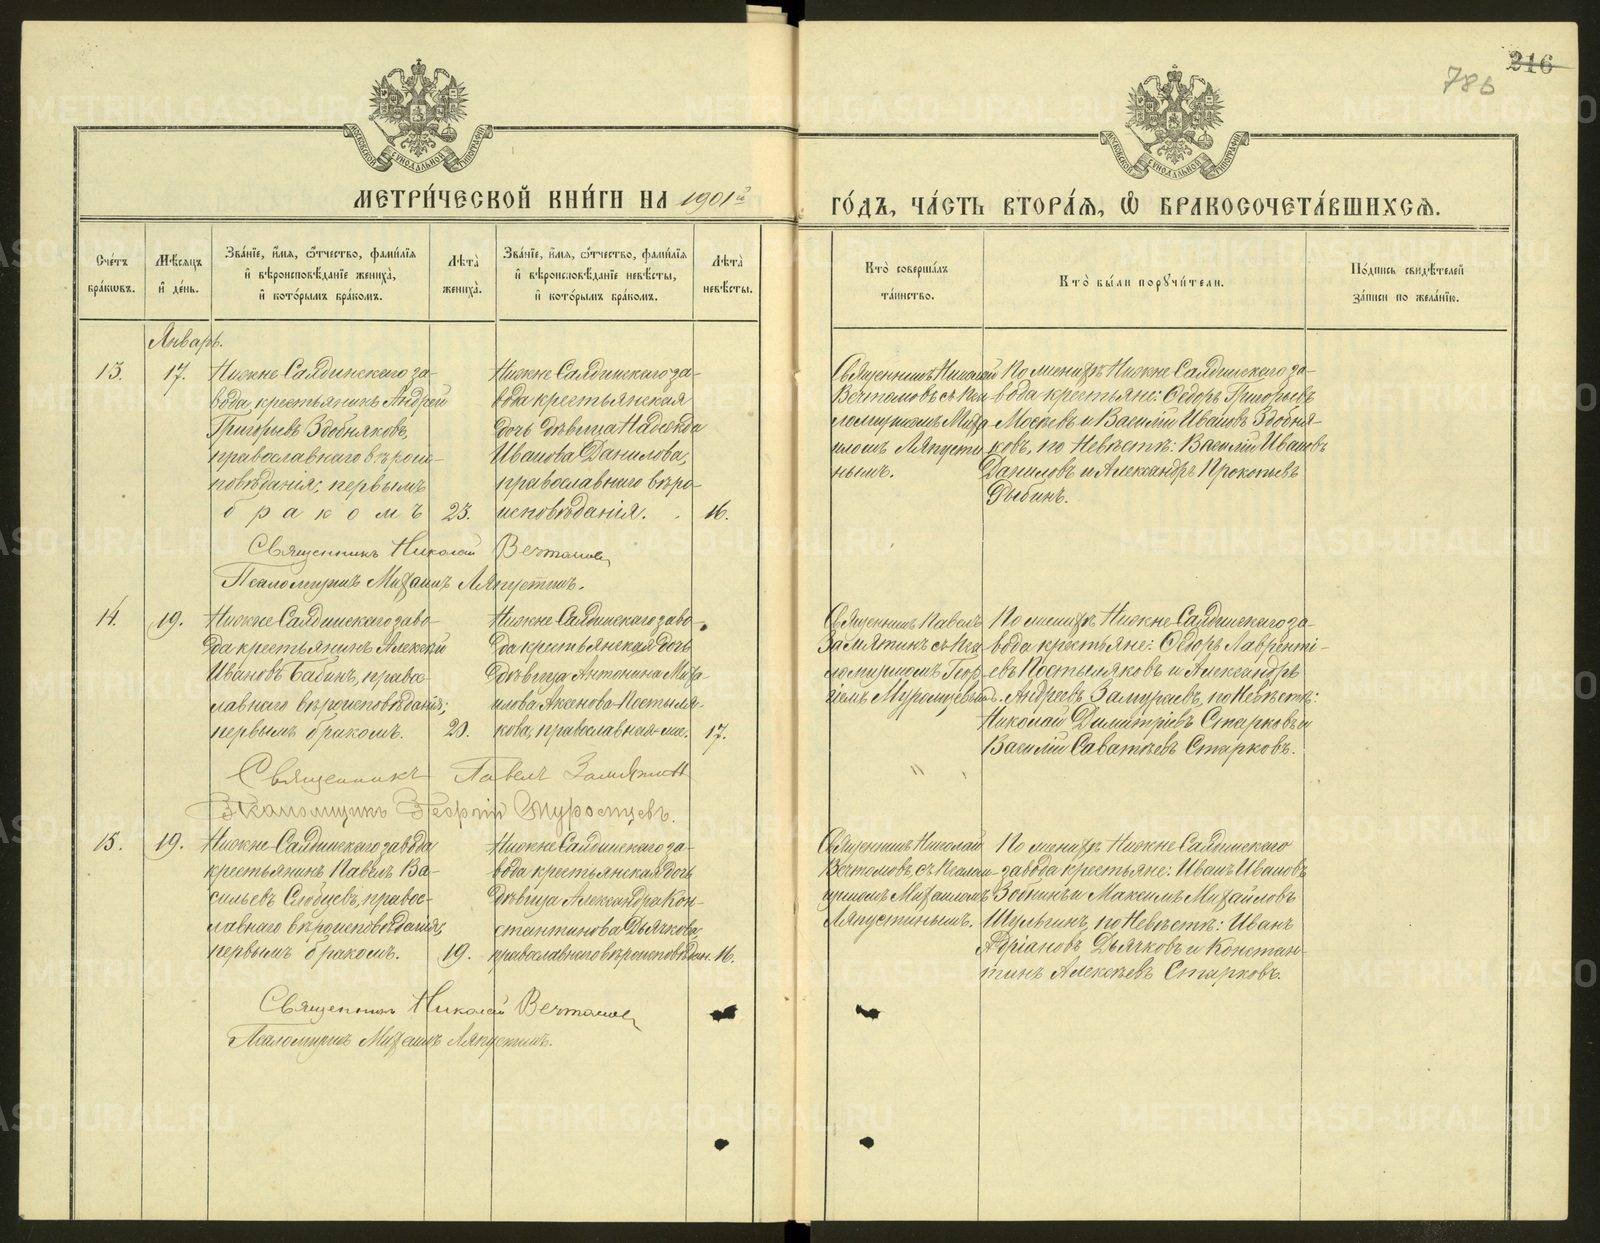 216
786
МОСКОВСКОЙ СУНОДАЛЬНОЙ ТИПОГРАФІИ
МОСКОВСКОЙ СУНОДАЛЬНОЙ ТИПОГРАФІИ
МЕТРИ́ЧЕСКОЙ КНИ́ГИ НА 1901й
ГО́ДЪ, ЧА́СТЬ ВТОРА́Я, Ѡ БРАКОСОЧЕТА́ВШИХСЯ.
Сче́тъ бра́кωвъ.
Мѣ́сяцъ и҆ де́нь.
Зва́нїе, и҆́мя, ѻ҆́тчество, фами́лїя и҆ вѣроисповѣ́данїе жениха̀, и҆ кото́рымъ бра́комъ.
Лѣта̀ жениха̀.
Зва́нїе, и҆́мя, ѻ҆́тчество, фами́лїя и҆ вѣроисповѣ́данїе невѣ́сты, и҆ кото́рымъ бра́комъ.
Лѣта̀ невѣ́сты.
Кто̀ соверша́лъ та́инство.
Кто̀ бы́ли порꙋчи́тели.
По́дпись свидѣ́телей за́писи по жела́нїю.
Январь.
13.
17.
Нижне Салдинскаго за-
вода крестьянинъ Андрей
Григорьевъ Здобняковъ,
православнаго вѣроис-
повѣданія, первымъ
бракомъ
23.
Нижне Салдинскаго за-
вода крестьянская
дочь дѣвица Надежда
Иванова Данилова,
православнаго вѣро-
исповѣданія.
16.
Священникъ Николай
Вечтомовъ съ Пса-
ломщикомъ Миха-
иломъ Ляпусти-
нымъ.
По женихѣ Нижне Салдинскаго за-
вода крестьяне: Ѳедоръ Григорьевъ
Мосѣевъ и Василій Ивановъ Здобня-
ковъ, по невѣстѣ: Василій Ивановъ
Даниловъ и Александръ Прокопьевъ
Рыбинъ.
Священникъ Николай Вечтомовъ
Псаломщикъ Михаилъ Ляпустинъ.
14.
19.
Нижне Салдинскаго заво-
да крестьянинъ Алексѣй
Ивановъ Бабинъ, право-
славнаго вѣроисповѣданія;
первымъ бракомъ.
20.
Нижне Салдинскаго заво-
да крестьянская дочь
дѣвица Антонина Миха-
илова Аксенова-Постыля-
кова, православная-же.
17.
Священникъ Павелъ
Замятинъ съ Пса-
ломщикомъ Геор-
гіемъ Муромцевымъ.
По женихѣ Нижне Салдинскаго за-
вода крестьяне: Ѳедоръ Лаврентi-
евъ Постыляковъ и Александръ
Андреевъ Замураевъ, по Невѣстѣ:
Николай Димитріевъ Старковъ и
Василій Саватѣевъ Старковъ.
Священникъ Павелъ Замятинъ
Псаломщикъ Георгій Муромцевъ.
15.
19.
Нижне Салдинскаго завода
крестьянинъ Павелъ Ва-
сильевъ Слобцевъ, правос-
лавнаго вѣроисповѣданія,
первымъ бракомъ.
19.
Нижне Салдинскаго за-
вода крестьянская дочь
дѣвица Александра Кон-
стантинова Дьячкова,
православнаго вѣроисповѣдан.
16.
Священникъ Николай
Вечтомовъ, съ Псалом-
щикомъ Михаиломъ
Ляпустинымъ.
По женихѣ Нижне Салдинскаго
завода крестьяне: Иванъ Ивановъ
Зобнинъ и Максимъ Михайловъ
Шульгинъ, по Невѣстѣ: Иванъ
Адріановъ Дьячковъ и Констан-
тинъ Алексѣевъ Старковъ.
Священникъ Николай Вечтомовъ
Псаломщикъ Михаилъ Ляпустинъ.
METRIKI.GASO-URAL.RU